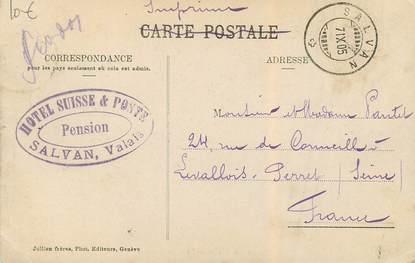 10€
Imprimé
CARTE POSTALE
SALVAN
7.IX.05
CORRESPONDANCE
pour les pays seulement où cela est admis.
ADRESSE
HOTEL SUISSE & POSTE
Pension
SALVAN, Valais
Monsieur et Madame Pautet
24, rue de Cormeille à
Levallois-Perret (Seine)
France
Jullien frères, Phot. Editeurs, Genève